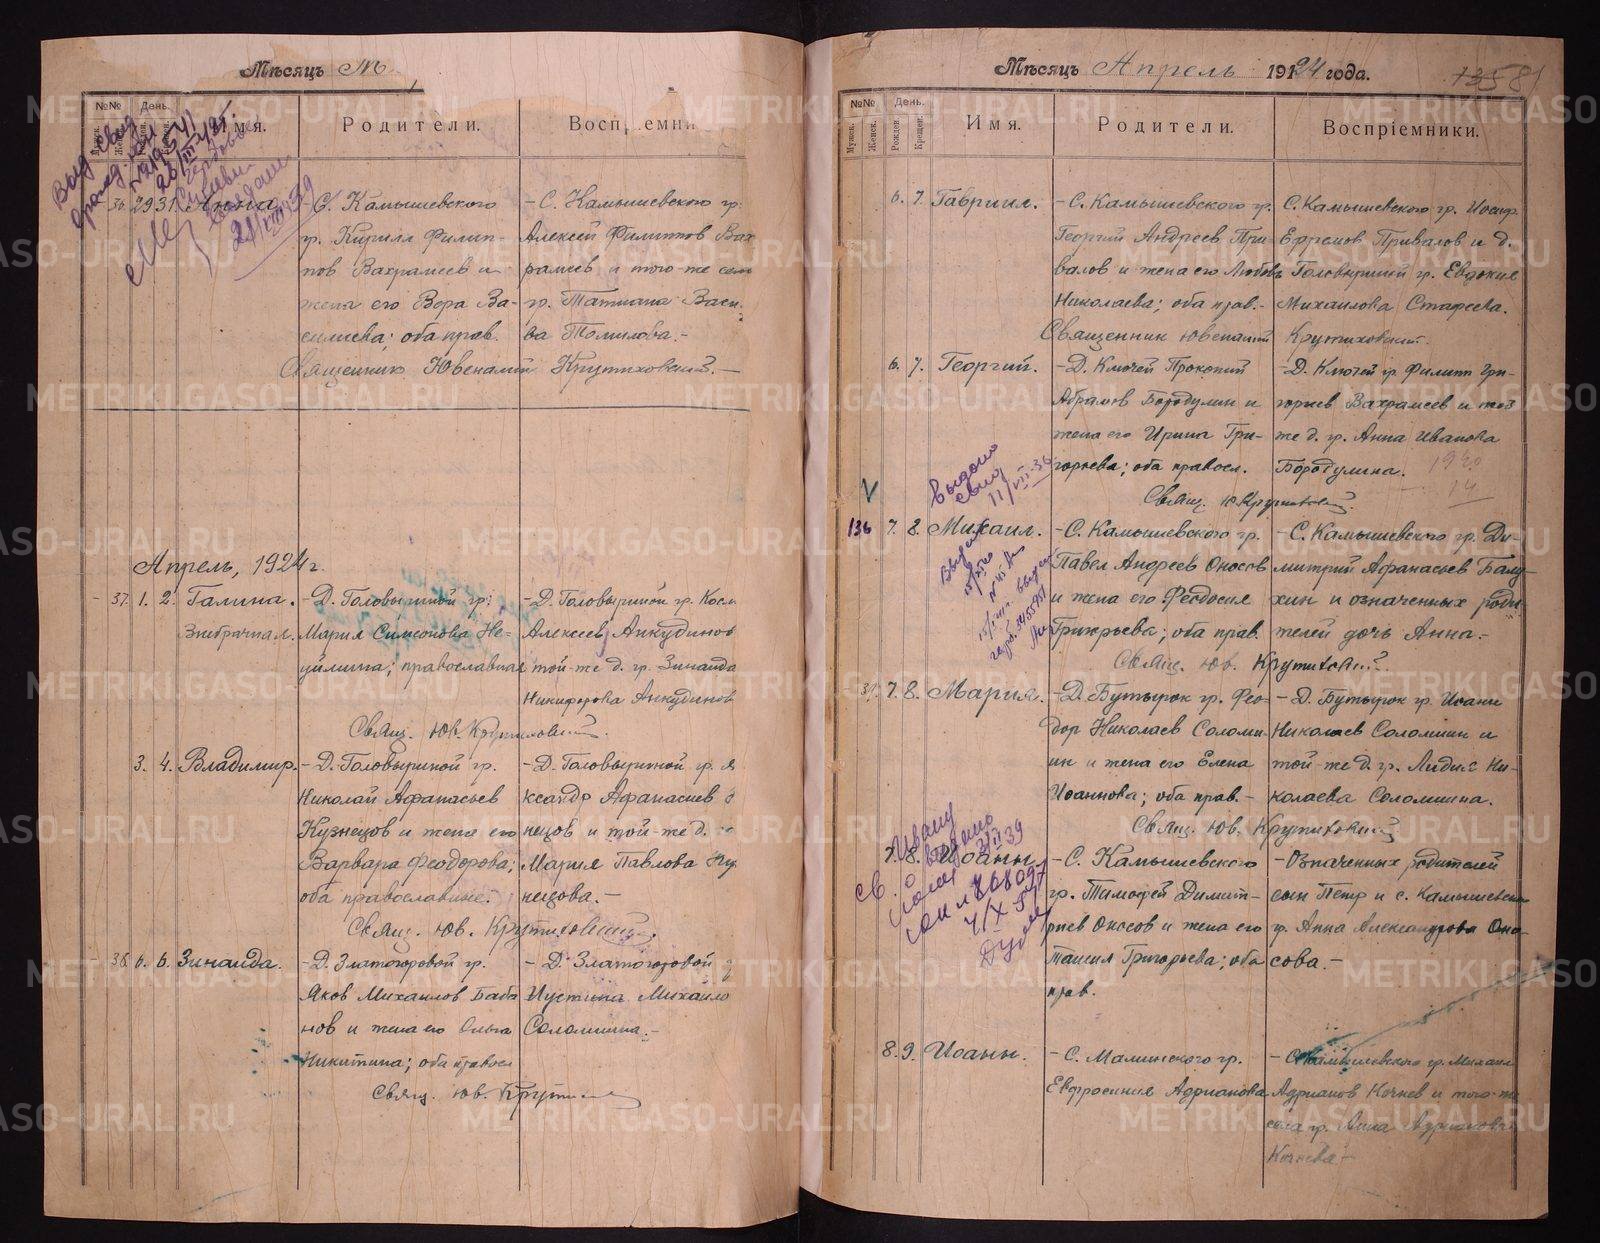 Мѣсяцъ М
№№ День.
Родители.
36. 29 31. Анна
- С. Камышевского
гр. Кирилл Филип-
пов Вахрамеев и
жена его Вера Ва-
силиева; оба прав.
- С. Камышевского гр.
Алексей Филиппов Вах
рамеев и того-же сел
гр. Татиана Васи.
ва Томилова.-
Священник Ювеналий Крутиховский.-
Апрель, 1924 г.
37. 1. 2. Галина.
Внебрачная.
- Д. Головыриной гр:
Мария Симеонова Не-
уймина; православная
- Д. Головыриной гр. Косм
Алексеев Анкудинов
той-же д. гр. Зинаида
Никифорова Анкудинов
Свящ. Юв. Крутиховский.
3. 4. Владимир.
- Д. Головыриной гр.
Николай Афанасьев
Кузнецов и жена его
Варвара Феодорова;
оба православные.
- Д. Головыриной гр.
ксандр Афанасиев
нецов и той-же д.
Мария Павлова Ку
нецова.-
Свящ. Юв. Крутиховский.
38. 6. 6. Зинаида.
- Д. Златогоровой гр.
Яков Михаилов Баба
нов и жена его Ольга
Никитина; оба правосл
- Д. Златогоровой
Иустина Михаило
Соломеина.-
Свящ. Юв. Крути
Мѣсяцъ Апрель 1924 года.
135 81
№№ День.
Мужск. Женск. Рожден. Крещен.
Имя. Родители. Воспріемники.
6. 7. Гавриил.
- С. Камышевского гр.
Георгий Андреев При-
валов и жена его Любовь
Николаева; оба прав.-
С. Камышевского гр. Иосиф
Ефремов Привалов и д.
Головыриной гр. Евдокия
Михаилова Стафеева.
Священник Ювеналий Крутиховский.
6. 7. Георгий.
- Д. Ключей Прокопий
Абрамов Бородулин и
жена его Ирина Гри-
горьева; оба правосл.
- Д. Ключей гр. Филипп Гри-
горьев Вахрамеев и той
же д. гр. Анна Иванова
Бородулина.
Свящ. Ю. Крутиховский.
Выдано
свид
11/VIII-36
136 7. 8. Михаил.
- С. Камышевского гр.
Павел Андреев Оносов
и жена его Феодосия
Григорьева; оба прав.
- С. Камышевского гр. Ди-
митрий Афанасьев Балу-
хин и означенных роди-
телей дочь Анна.-
Свящ. Юв. Крутиховский.
39. 7. 8. Мария.
- Д. Бутырок гр. Фео-
дор Николаев Соломе-
ин и жена его Елена
Иоаннова; оба прав.-
- Д. Бутырок гр. Иоанн
Николаев Соломеин и
той-же д. гр. Лидия Ни-
колаева Соломеина.
Свящ. Юв. Крутиховский
7. 8. Иоанн
- С. Камышевского
гр. Тимофей Димит-
риев Оносов и жена его
Таисия Григорьева; оба
прав.
- Означенных родителей
сын Петр и с. Камышевско
гр. Анна Александрова Оно-
сова.-
8. 9. Иоанн.
- С. Маминского гр.
Евфросиния Адрианова
- С. Камышевского гр. Михаил
Адрианов Кочнев и того-же
села гр. Анна Адрианова
Кочнева-
METRIKI.GASO-URAL.RU